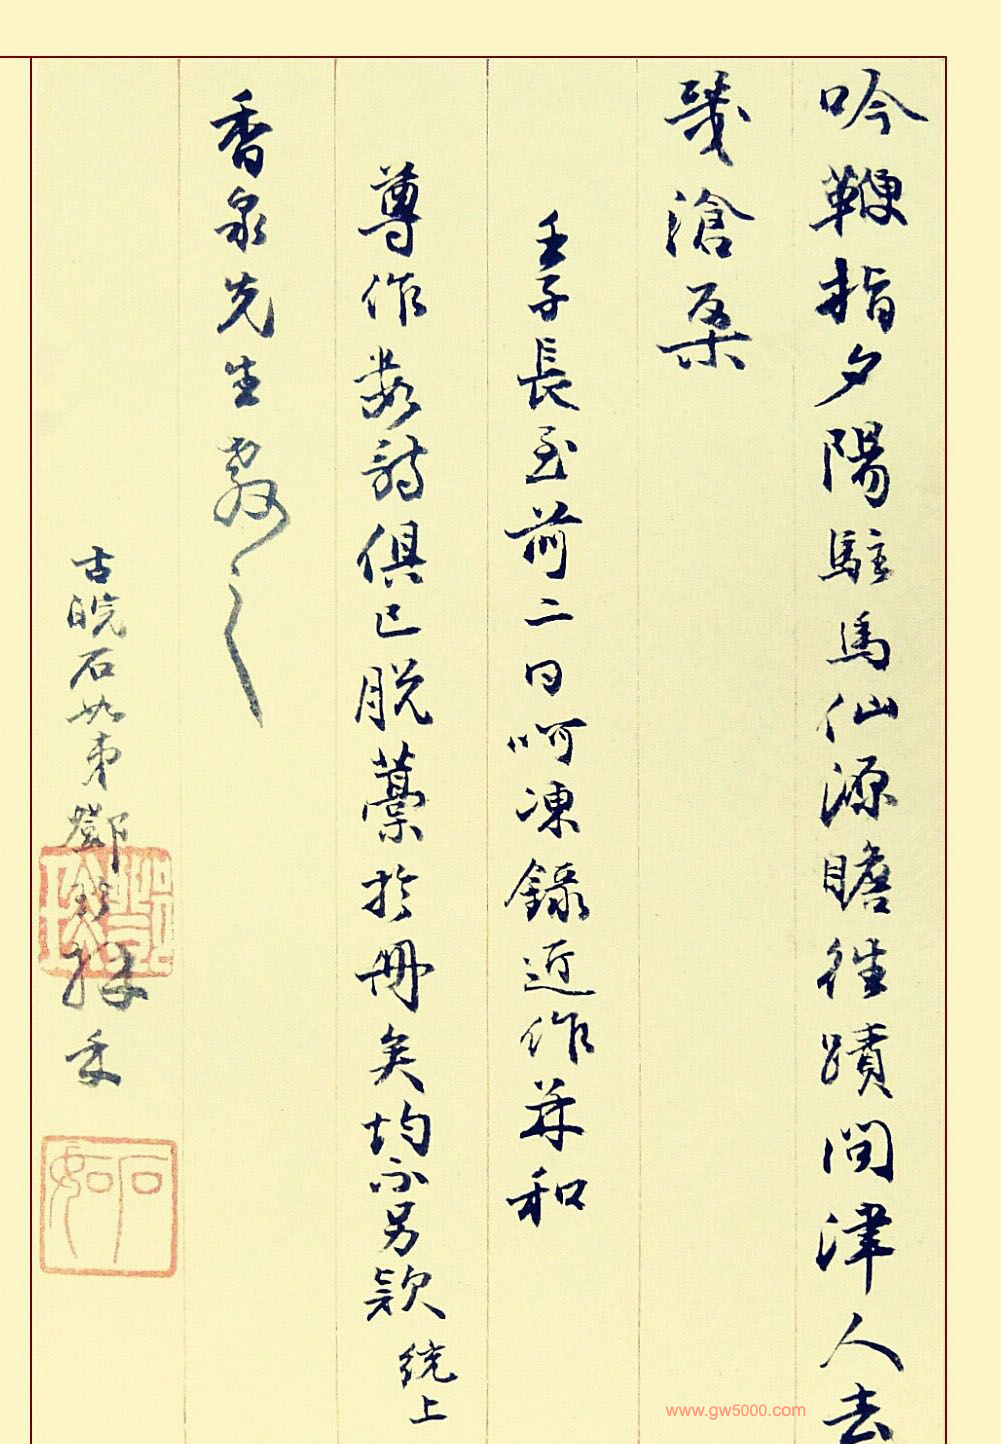 吟鞭指夕陽駐馬仙源瞻往蹟問津人去
幾滄桑
壬子長至前二日呵凍錄近作并和
尊作數詩俱已脫藁於冊矣均不另款統上
香泉先生教之
古皖石如弟鄧琰
石如
www.gw5000.com